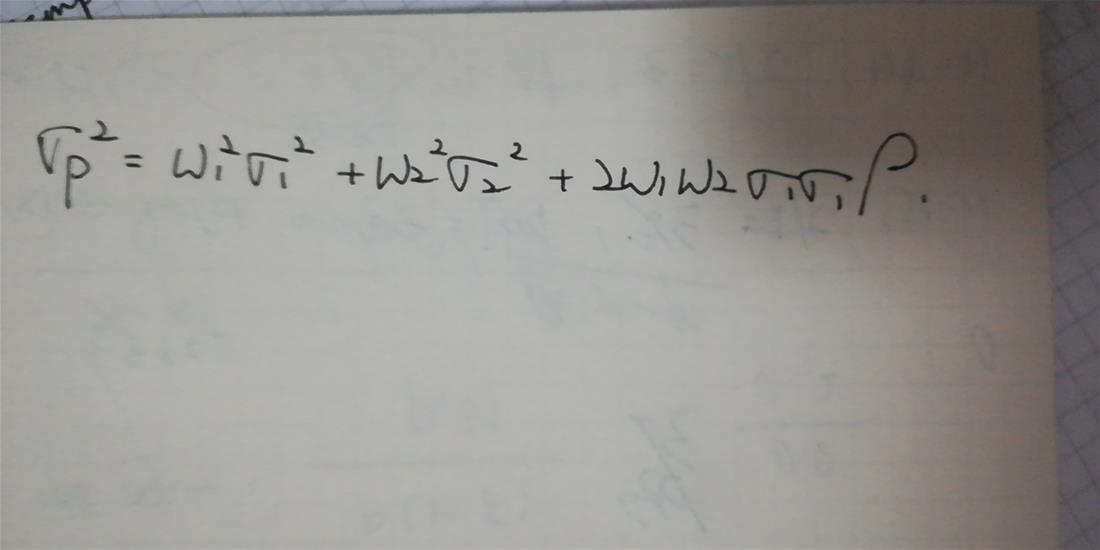 σp² = w₁²σ₁² + w₂²σ₂² + 2w₁w₂σ₁σ₁ρ.